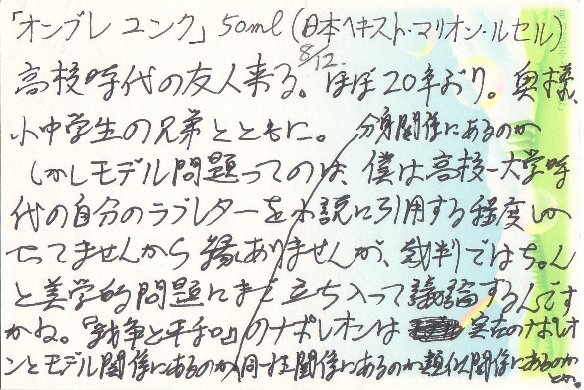 「オンブレ ユンク」50ml(日本ヘキスト・マリオン・ルセル)
8/12
高校時代の友人来る。ほぼ20年ぶり。奥様、
小中学生の兄弟とともに。 分身関係にあるのか
しかしモデル問題ってのは、僕は高校-大学時
代の自分のラブレターを小説に引用する程度しか
やってませんから縁ありませんが、裁判ではちゃん
と美学的問題にまで立ち入って議論するんです
かね。『戦争と平和』のナポレオンは 実在のナポレオ
ンとモデル関係にあるのか同一性関係にあるのか類似関係にあるのか